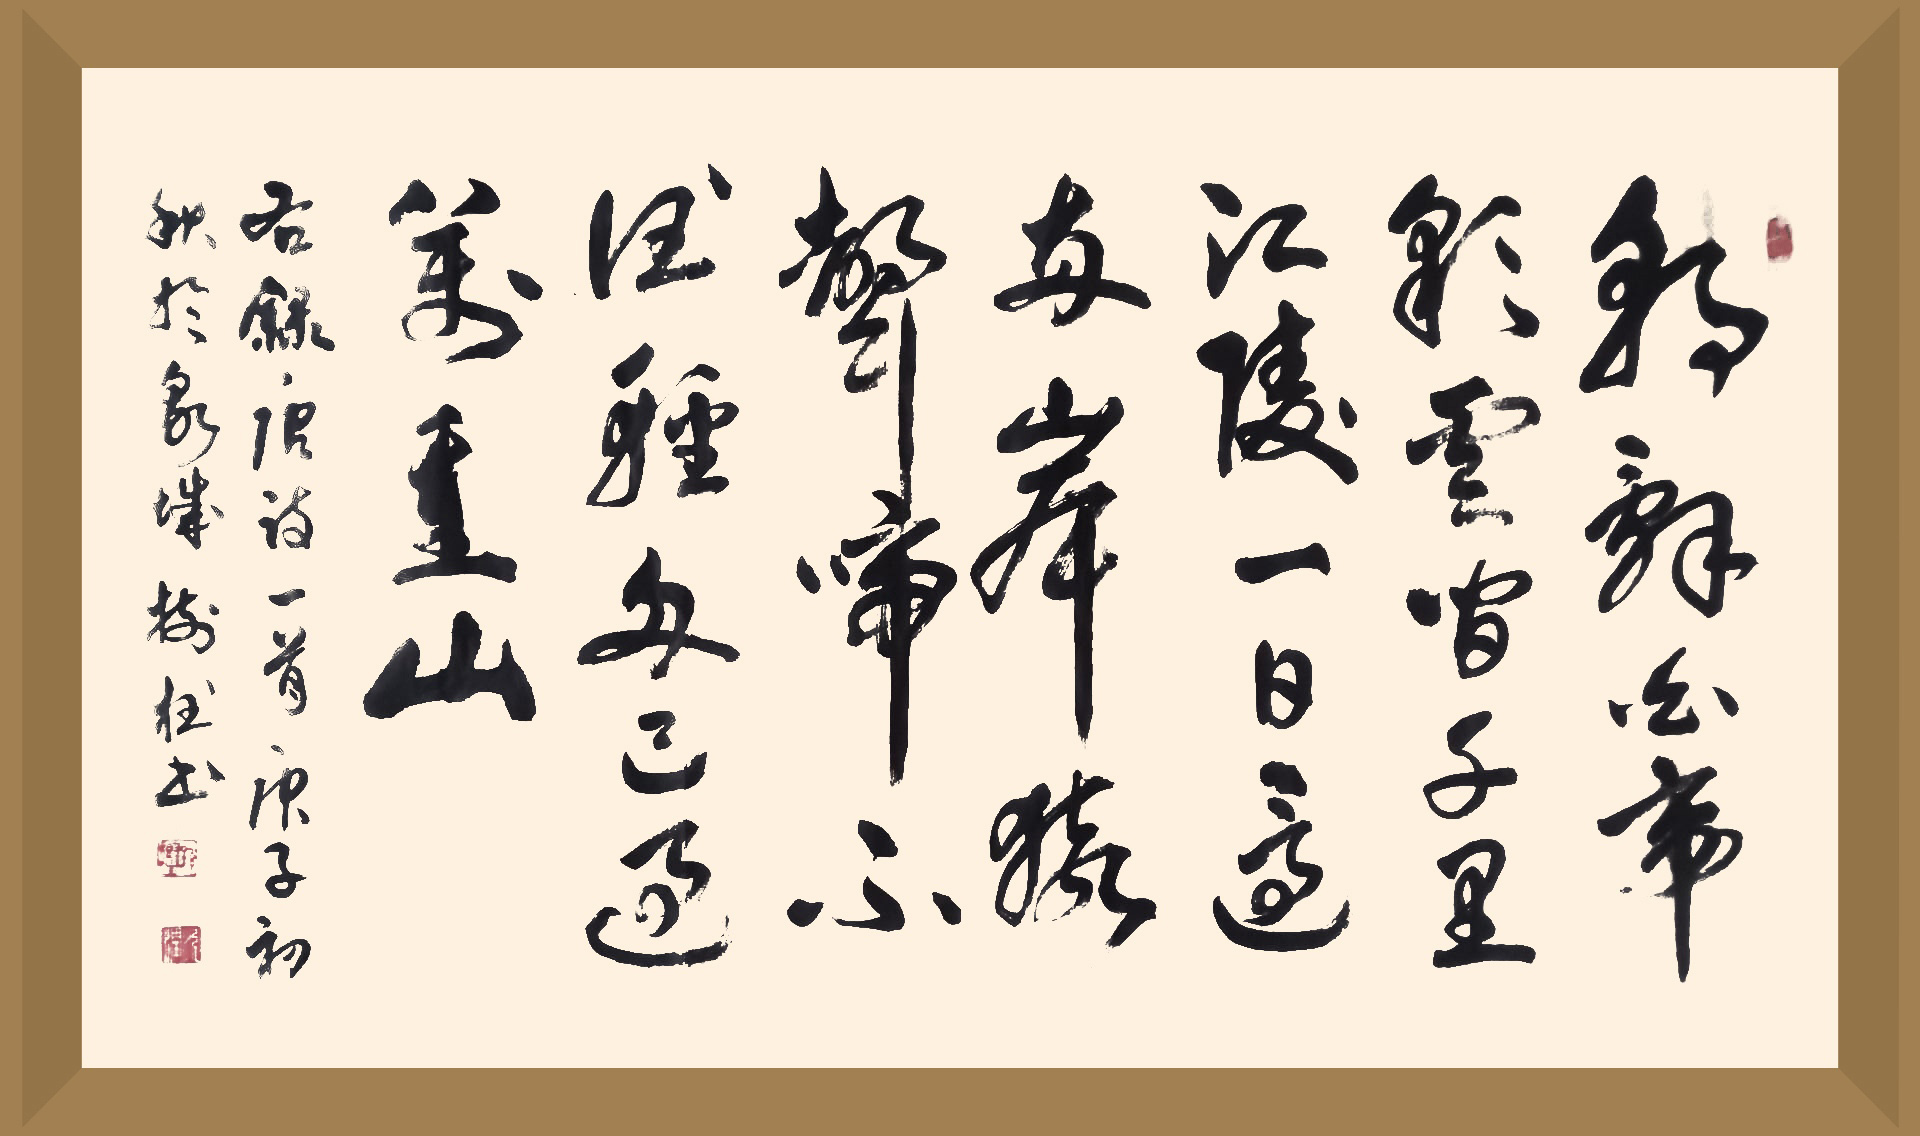 朝辭白帝
彩雲間千里
江陵一日還
兩岸猿
聲啼不
住輕舟已過
萬重山
右錄唐詩一首庚子初
秋於泉城樹柱书